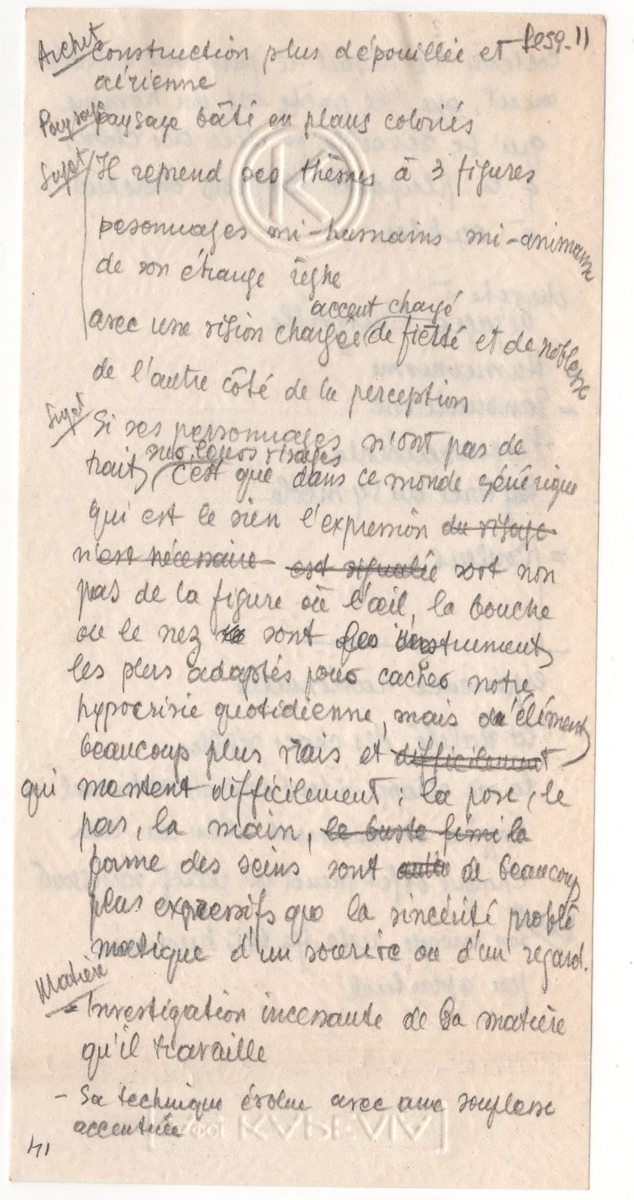 Archit construction plus dépouillée et Pe59-11
aérienne
Paysage paysage bâti en plans coloriés
Sujet Il reprend ses thèmes à 3 figures
personnages mi-humains mi-animaux
de son étrange règne
accent chargé
avec une vision chargée de fierté et de noblesse
de l'autre côté de la perception
Sujet Si ses personnages n'ont pas de
sur leurs visages
traits, c'est que dans ce monde générique
qui est le sien l'expression du visage
n'est nécessaire est signalée sort non
pas de la figure où l'œil, la bouche
ou le nez sont des instruments
les plus adaptés pour cacher notre
hypocrisie quotidienne, mais d'éléments
beaucoup plus vrais et difficilement
qui mentent difficilement : la pose, le
pas, la main, le buste la
forme des seins sont de beaucoup
plus expressifs que la sincérité problé
matique d'un sourire ou d'un regard.
Matière
- Investigation incessante de la matière
qu'il travaille
- Sa technique évolue avec une souplesse
accentuée